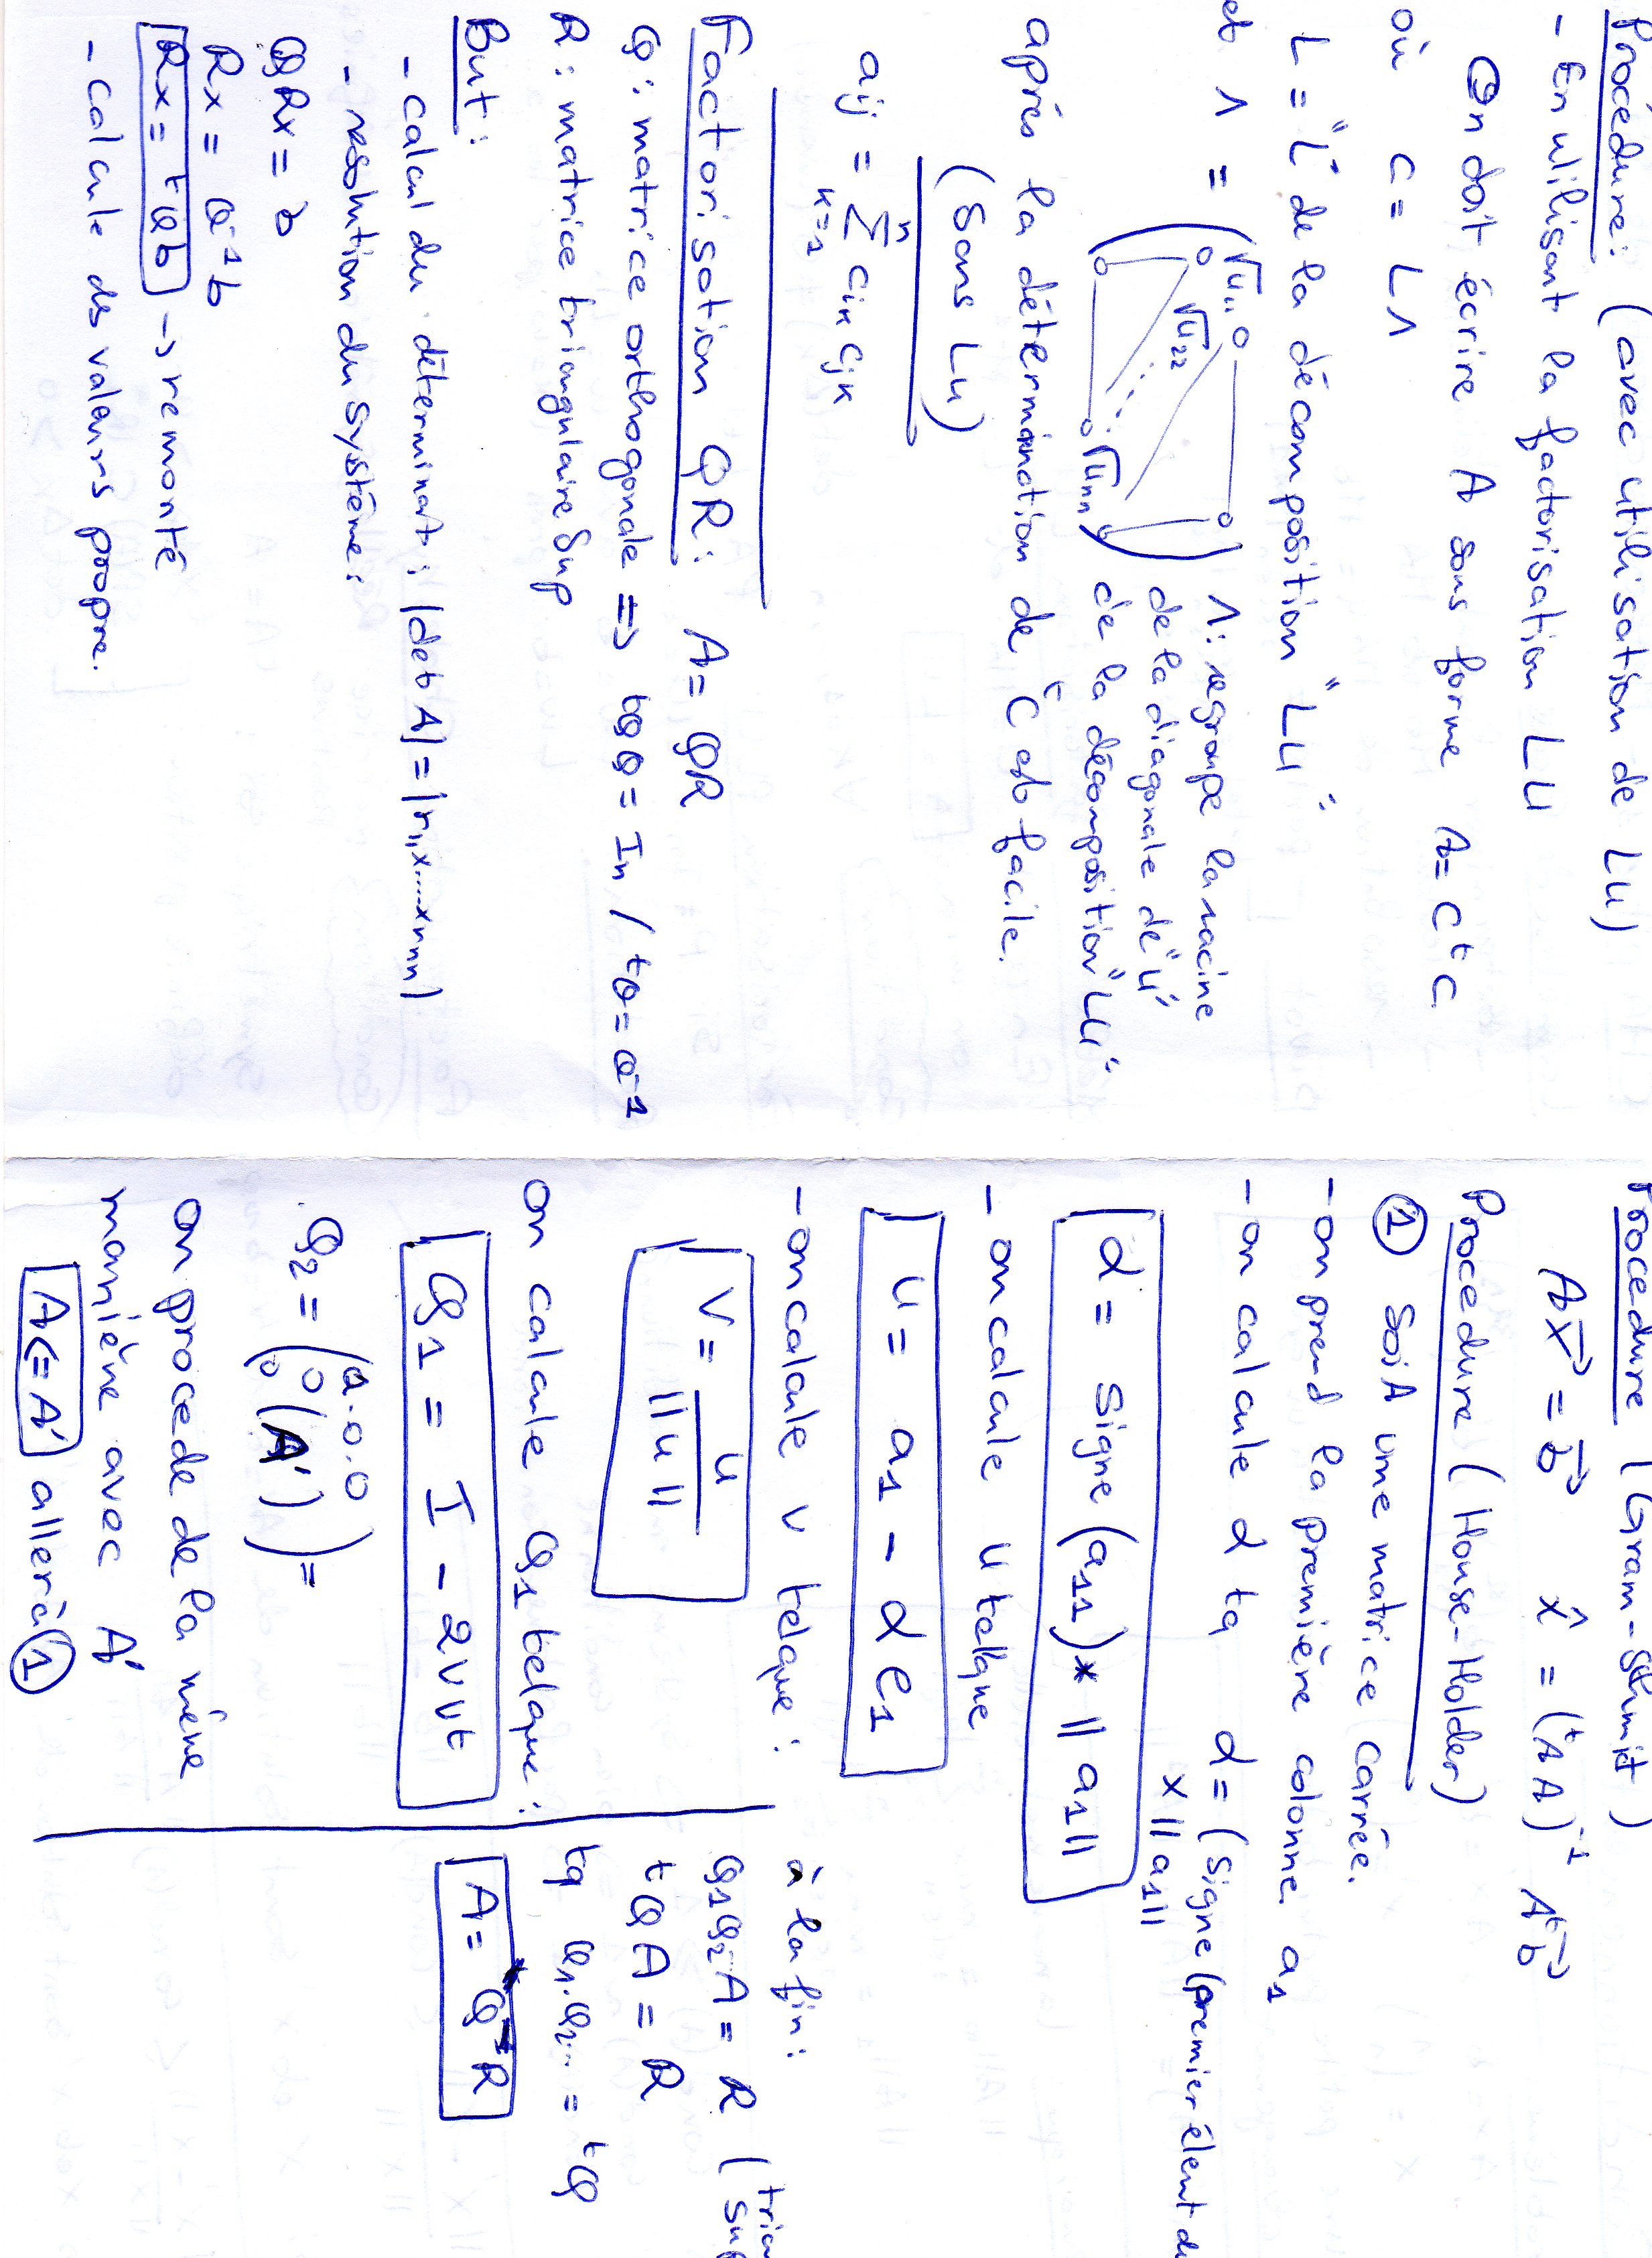 Procédure: (avec utilisation de LU)
- En utilisant la factorisation LU
On doit écrire A sous forme A = C ᵗC
où C = LΛ
L = "L" de la décomposition "LU"
et Λ = (√u₁₁ 0 0
0 √u₂₂
0 0 √uₙₙ)
Λ: regroupe la racine
de la diagonale de "U"
de la décomposition "LU"
aprés la détermination de ᵗC est facile.
(Sans LU)
aij = Σ_{k=1}^{n} cik cjk
Factorisation QR: A = QR
Q: matrice orthogonale => ᵗQQ = In / ᵗQ = Q⁻¹
R: matrice triangulaire Sup
But:
- calcul du déterminat: |det A| = |r₁₁x.....xrnn|
- resolution du système:
QRx = b
Rx = Q⁻¹b
Rx = ᵗQb -> remonté
- calcule des valeurs propre.
Procedure (Gram-Schmit)
Ax⃗ = b⃗ x̂ = (ᵗA A)⁻¹ Aᵗb⃗
Procedure (House-Holder)
① Soi A une matrice carrée.
- on prend la première colonne a₁
- on calcule α tq α = (signe (premier élent
x ||a₁||
α = signe (a₁₁) * ||a₁||
- on calcule u telque
u = a₁ - α e₁
- on calcule v telque:
v = u / ||u||
on calcule Q₁ telque:
Q₁ = I - 2vvᵗ
Q₂ = (1 . 0 . 0
0 (A')
0 ) =
on procede de la même
manière avec A'
A <= A' aller à ①
à la fin:
Q₁Q₂ A = R (
ᵗQ A = R
tq Q₁.Q₂.. = ᵗQ
A = Q R